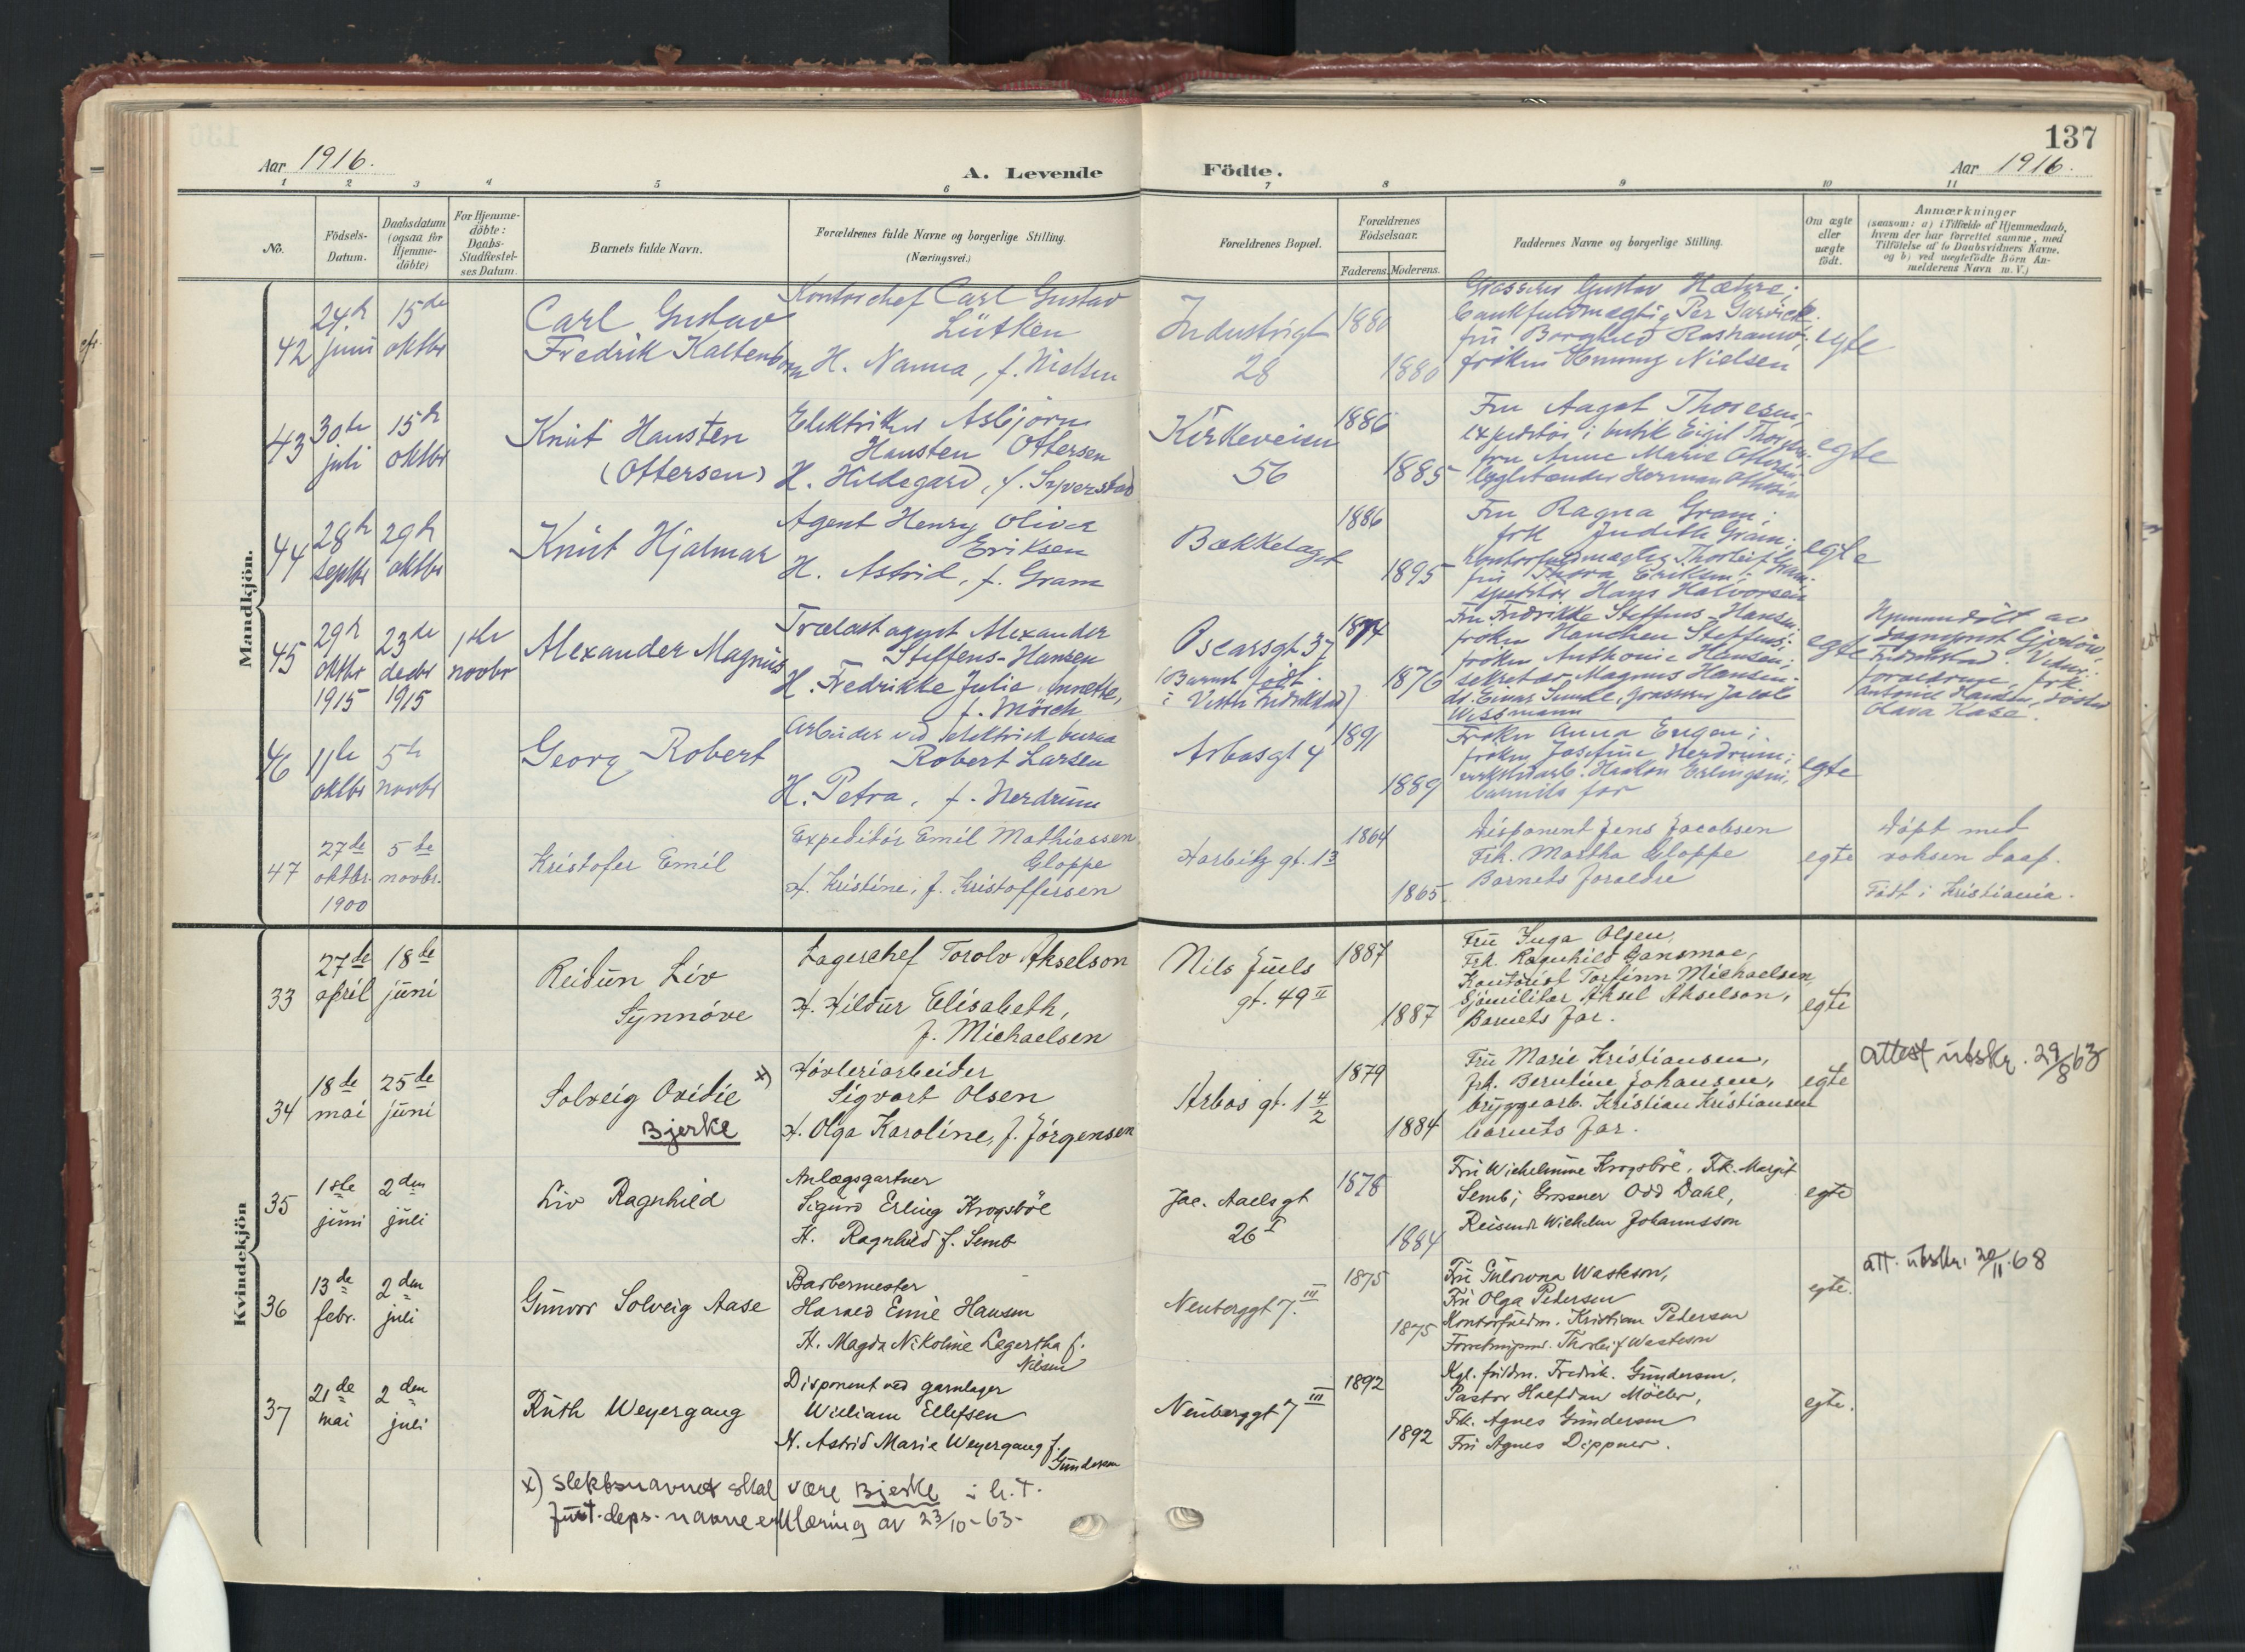 137
Aar 1916.
A. Levende
Födte.
Aar 1916.
1 2 3 4 5 6 7 8 9 10 11
No.
Födsels-
Datum.
Daabsdatum
(ogsaa for
Hjemme-
döbte)
For Hjemme-
döbte:
Daabs-
Stadfæstel-
ses Datum.
Barnets fulde Navn.
Forældrenes fulde Navne og borgerlige Stilling.
(Næringsvei.)
Forældrenes Bopæl.
Forældrenes
Födselsaar.
Faderens. Moderens.
Faddernes Navne og borgerlige Stilling.
Om ægte
eller
uægte
födt.
Anmærkninger
(saasom: a) i Tilfælde af Hjemmedaab,
hvem der har forrettet samme, med
Tilföielse af to Daabsvidners Navne,
og b) ved uægtefödte Börn An-
melderens Navn m. V.)
Mandkjön.
42
24de
juni
15de
oktbr
Carl Gustav
Fredrik Kaltenborn
Kontorchef Carl Gustav
Lütken
H. Nanna, f. Nielsen
Industrigt
28
1880
1880
Grosserer Gustav Hæhre;
bankfuldmægtig Per Garvick;
fru Borghild
fröken Henny Nielsen
egte
43
30te
juli
15de
oktbr
Knut Hansten
(Ottersen)
Elektriker Asbjörn
Hansten Ottersen
H. Hildegard, f. Syverstad
Kirkeveien
56
1886
1885
Fru Aagot Thoresen;
expeditör i butik Eigil Thoresen;
fru Anne Marie Ottersen
Herman Ottersen
egte
44
28de
septbr
29de
oktbr
Knut Hjalmar
Agent Henry Oliver
Eriksen
H. Astrid, f. Gram
Bækkelaget
1886
1895
Fru Ragna Gram;
frk Judith Gram;
kontorfuldmægtig Thorleif Gram;
fru Thora Eriksen;
expeditör Hans Halvorsen
egte
45
29de
oktbr
1915
23de
decbr
1915
1ste
novbr
Alexander Magnus
Trælastagent Alexander
Steffens-Hansen
H. Fredrikke Julie Annette,
f. Mörch
Oscarsgt 37
(Barnet födt
i Vestre Fredrikstad)
1874
1876
Fru Fredrikke Steffens-Hansen;
fröken Hanchen Steffens;
fröken Anthonie Hansen;
sekretær Magnus Hansen;
dr. Einar Sunde, grosserer Jacob
Wissmann
egte
Hjemmedöbt av
sogneprest Gjerlöw,
Fredrikstad. Vidner:
forældrene, frk.
Antonie Hansen, söster
Olava Kase.
46
11te
oktbr
5te
novbr
Georg Robert
Arbeider ved elektrisk bureau
Robert Larsen
H. Petra, f. Nerdrum
Arbosgt 4
1891
1889
Fröken Anna Engen;
fröken Josefine Nerdrum;
verkstedarb. Haakon Erlingsen;
barnets far
egte
47
27de
oktbr.
1900
5te
novbr.
Kristofer Emil
Expeditör Emil Mathiassen
Gloppe
H. Kristine, f. Kristoffersen
Harbitz gt. 13
1864
1865.
Disponent Jens Jacobsen
Frk. Martha Gloppe
Barnets foreldre
egte
döpt med
voksen daap.
Födt i Kristiania.
Kvindekjön
33
27de
april
18de
juni
Reidun Liv
Synnöve
Lagerchef Torolv Akselson
H. Hildur Elisabeth,
f. Michaelsen
Nils Juels
gt. 49 II
1887
1887
Fru Inga Olsen,
Frk. Ragnhild Gansmoe,
Kontorist Torfinn Michaelsen,
Sjömilitær Aksel Akselson,
Barnets far.
egte
34
18de
mai
25de
juni
Solveig Ovidie x)
Bjerke
Hövleriarbeider
Sigvart Olsen
H. Olga Karoline, f. Jörgensen
Arbos gt. 1 4/2
1879
1884
Fru Marie Kristiansen,
frk. Berntine Johansen,
bryggearb. Kristian Kristiansen
barnets far.
egte
attest utskr. 29/8 63
35
1ste
juni
2den
juli
Liv Ragnhild
Anlægsgartner
Sigurd Erling Krogsböl
H. Ragnhild f. Semb
Jac. Aalls gt
26 I
1878
1884
Fru Wilhelmine Krogsböl, Frk. Margit
Semb; Grosserer Odd Dahl,
Reisende Wilhelm Johannsson
egte
36
13de
febr.
2den
juli
Gunvor Solveig Aase
Barbermester
Harald Emil Hansen
H. Magda Nikoline Legertha f.
Nilsen
Neuberggt 7. III
1875
1875
Fru Gulovna Wasteson,
Fru Olga Pedersen
Kontorfuldm. Kristian Pedersen
Thorleif Wasteson
egte.
att. utskr. 20/11.68
37
21de
mai
2den
juli
Ruth Weyergang
Disponent ved garnlager
William Ellefsen
H. Astrid Marie Weyergang f.
Gundersen
Neuberggt 7 III
1892
1892
Kgl. fuldm. Fredrik Gundersen,
Pastor Halfdan Möller,
Frk. Agnes Gundersen
Fru Agnes Dippner.
egte.
x) Slektsnavnet skal være Bjerke i h. t.
Just.deps. navneerklæring av 23/10-63-